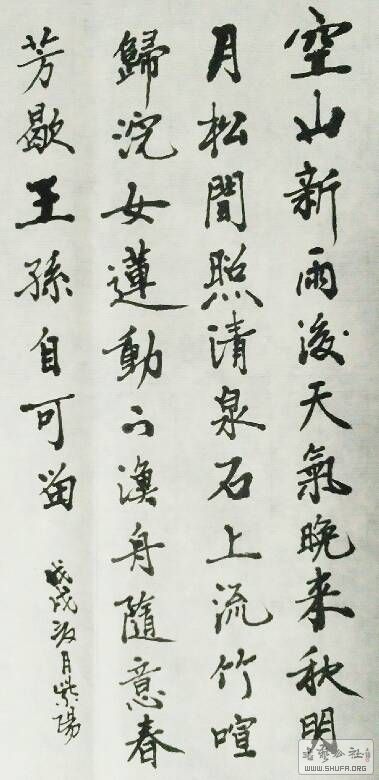 空山新雨後天氣晚来秋明
月松間照清泉石上流竹喧
歸浣女蓮動下漁舟隨意春
芳歇王孫自可留
戊戌月紫陽
书艺公社
WWW.SHUFA.ORG